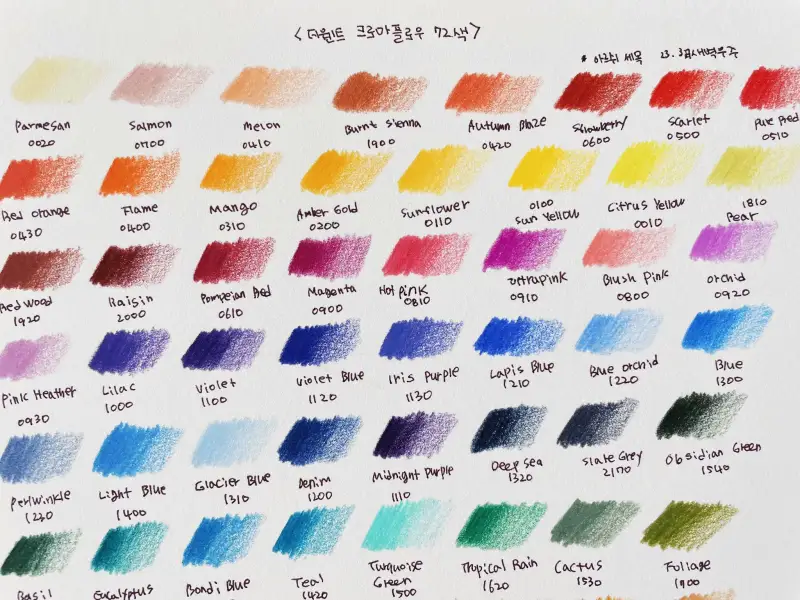 <더웬트 크로마플로우 72색>
* 아르쉬 세목 23.
Parmesan Salmon Melon Burnt Sienna Autumn Blaze Strawberry Scarlet Pure Red
0020 0700 0410 1900 0420 0600 0500 0510
Red Orange Flame Mango Amber Gold Sunflower 0100 Citrus Yellow 1810
0430 0400 0310 0200 0110 Sun Yellow 0010 Pear
Redwood Raisin Pompeian Red Magenta Hot Pink Ultrapink Blush Pink Orchid
1920 2000 0610 0900 0810 0910 0800 0920
Pink Heather Lilac Violet Violet Blue Iris Purple Lapis Blue Blue Orchid Blue
0930 1000 1100 1120 1130 1210 1220 1300
Periwinkle Light Blue Glacier Blue Denim Midnight Purple Deep Sea Slate Grey Obsidian Green
1400 1310 1200 1110 1320 2170 1540
Basil Eucalyptus Bondi Blue Teal Turquoise Tropical Rain Cactus Foliage
1420 Green 1620 1530 1700
1500